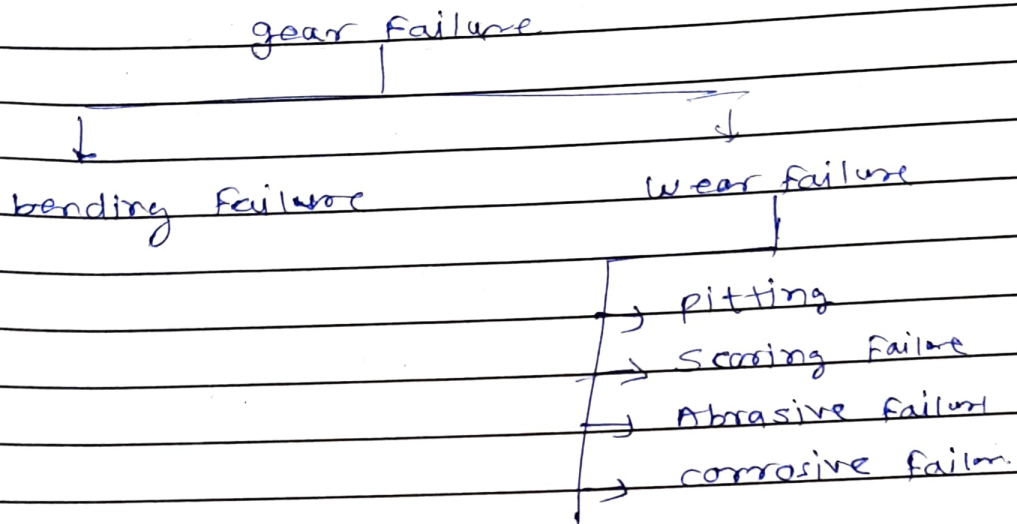 gear Failure
bending Failure
wear failure
pitting
Scoring Failure
Abrasive failure
corrosive failur